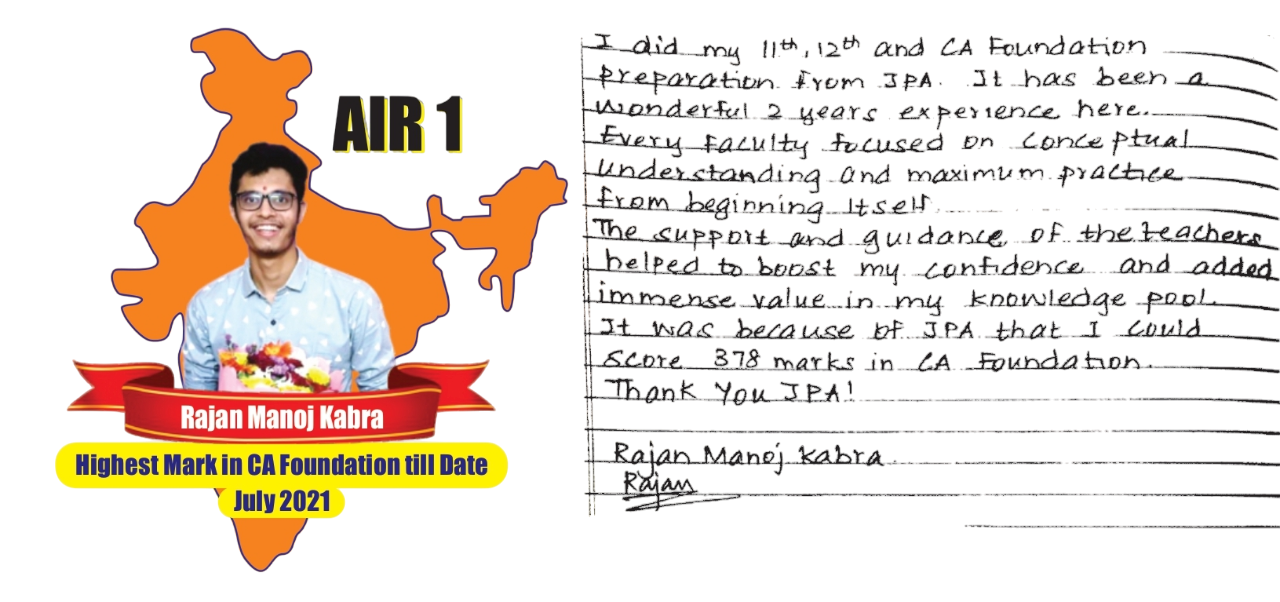 AIR 1
Rajan Manoj Kabra
Highest Mark in CA Foundation till Date
July 2021
I did my 11th, 12th and CA Foundation
preparation from JPA. It has been a
wonderful 2 years experience here.
Every faculty focused on conceptual
understanding and maximum practice
from beginning itself.
The support and guidance of the teachers
helped to boost my confidence and added
immense value in my knowledge pool.
It was because of JPA that I could
score 378 marks in CA Foundation.
Thank You JPA!
Rajan Manoj Kabra
Rajan